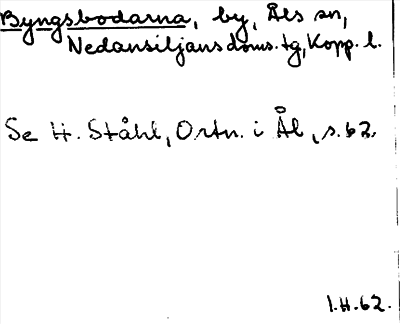 Byngsbodarna, by, Åls sn,
Nedansiljans doms. tg, Kopp. l.
Se H. Ståhl, Ortn. i Ål, s. 62.
I.H.62.